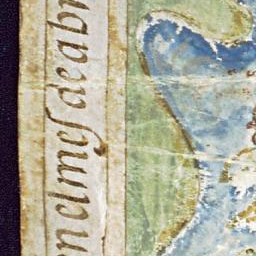 en el mes de abr